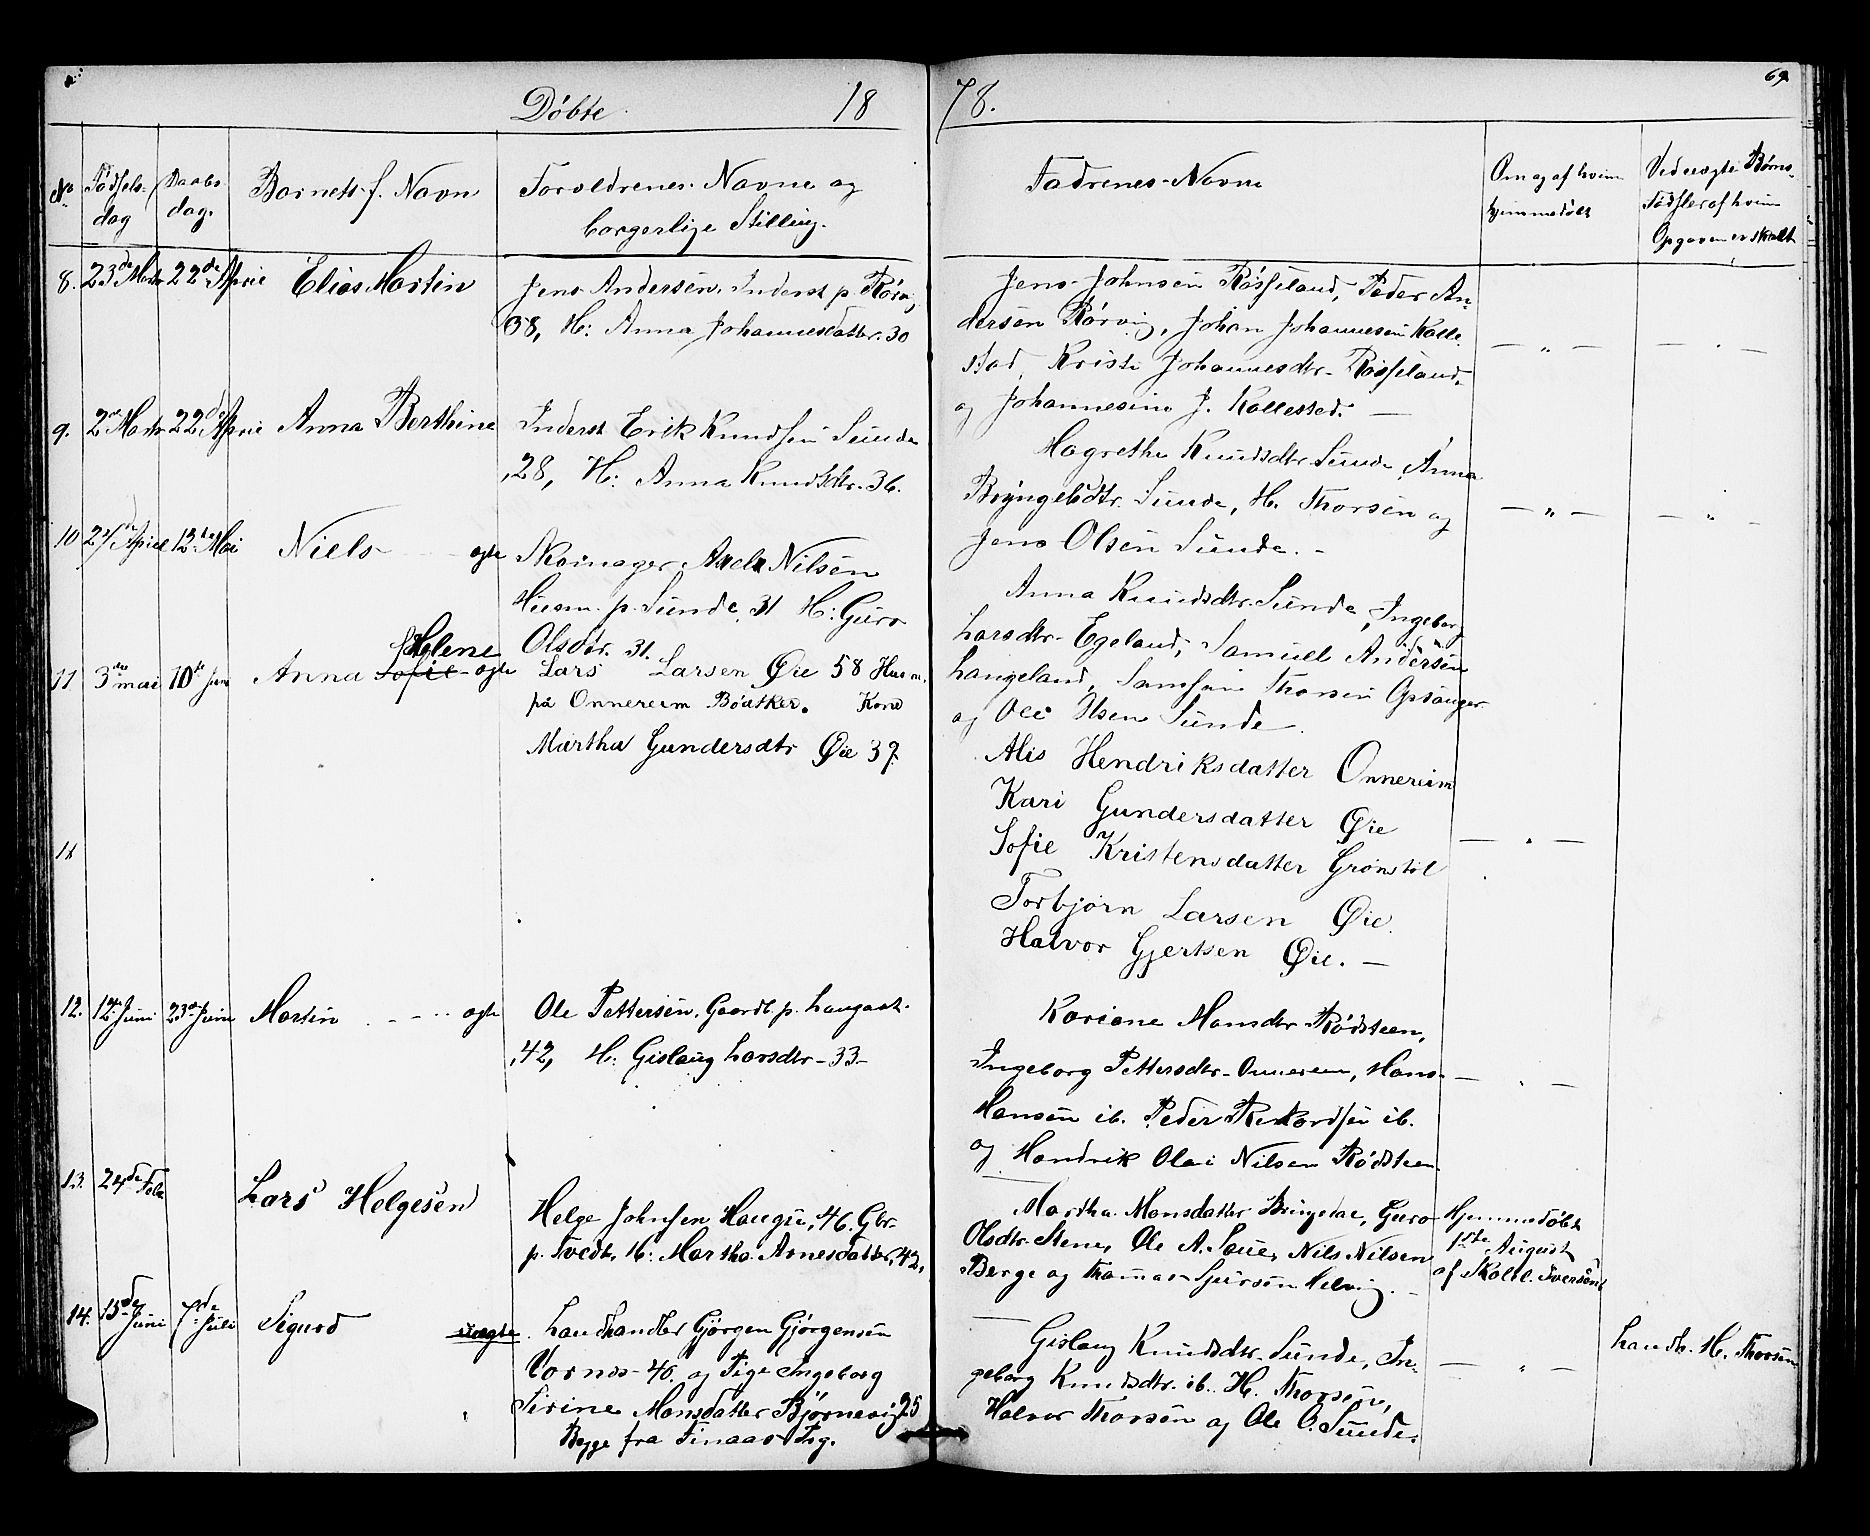 69
Döbte 18 78.
No Födsels- dag Daabs dag. Barnets f. Navn Foreldrenes Navne og borgerlige Stilling. Fadrenes-Navne Om og af hvem hjemmedöbt Ved uegte Börns Födsler af hvem Opgaven er skeett
8. 23de Marts 22de April Elias Martin
Jens Andersen, Inderst p. Rörv,
38, H: Anna Johannesdatter. 30
Jens Johnsen Rösseland, Peder An-
dersen Rörvig, Johan Johannesen Kalle
stad, Kristi Johannesdtr. Rösseland,
og Johannesine J. Kallestad. —
— " — — " —
9. 2den Marts 22de April Anna Berthine
Inderst Erik Knudsen Sunde
28, H: Anna Knudsdtr. 36.
Magrethe Knudsdtr. Sunde, Anna
Bryngelsdtr. Sunde, H. Thorsen og
Jens Olsen Sunde. -
— " — — " —
10 April 12te Mai Niels - - - ægte
Skomager Nilsen
Husm. p. Sunde, 31 H: Guro
Olsdtr. 31.
Anna Knudsdtr. Sunde, Ingeborg
Larsdtr. Egeland, Samuel Andersen
Langeland, Samson Thorsen Opsanger
og Ole Olsen Sunde.
11 3die mai 10de Juni Anna Sofie Helene - ægte
Lars Larsen Øie 58 Husm.
på Onnereim Bödtker. Kone
Martha Gundersdtr Øie 37.
Alis Hendriksdatter Onnereim
Kari Gundersdatter Øie
Sofie Kristensdatter Grönstöl
Torbjörn Larsen Øie.
Halvor Gjertsen Øie. —
— " —
11
12. 12te Juni 23de Juni Martin - - - ægte
Ole Pettersen, Gaardb. p.
42, H: Gislaug Larsdtr - 33 -
Kariane Monsdtr. Rödsteen,
Ingeborg Pettersdtr. Onnereim, Hans
Hansen ib. Peder ib.
og Hendrik Olai Nilsen Rödsteen
— " —
13. 24de Feb Lars Helgesen
Helge Johnsen Haugse, 46. Gbr.
p. Tvedt, H: Martha Arnesdatter, 42,
Martha Monsdatter Bringedal, Guro
Olsdtr. Stene, Ole A. Saue, Nils Nilsen
Berge og Thomas Sjursen Helvig. -
Hjemmedöbt
1ste August
af Skoll. Iversen
14. 15de Juni 7de Juli Sigurd uægte
Landhandler Gjörgen Gjörgensen
Vornes 40. og Pige Ingeborg
Sirine Monsdatter Björnevig 25
Begge fra Finaas Prg.
Gislaug Knudsdtr. Sunde, In-
geborg Knudsdtr. ib. H. Thorsen,
Halvor Thorsen og Ole O. Sunde.
— " —
Landh. H. Thorsen